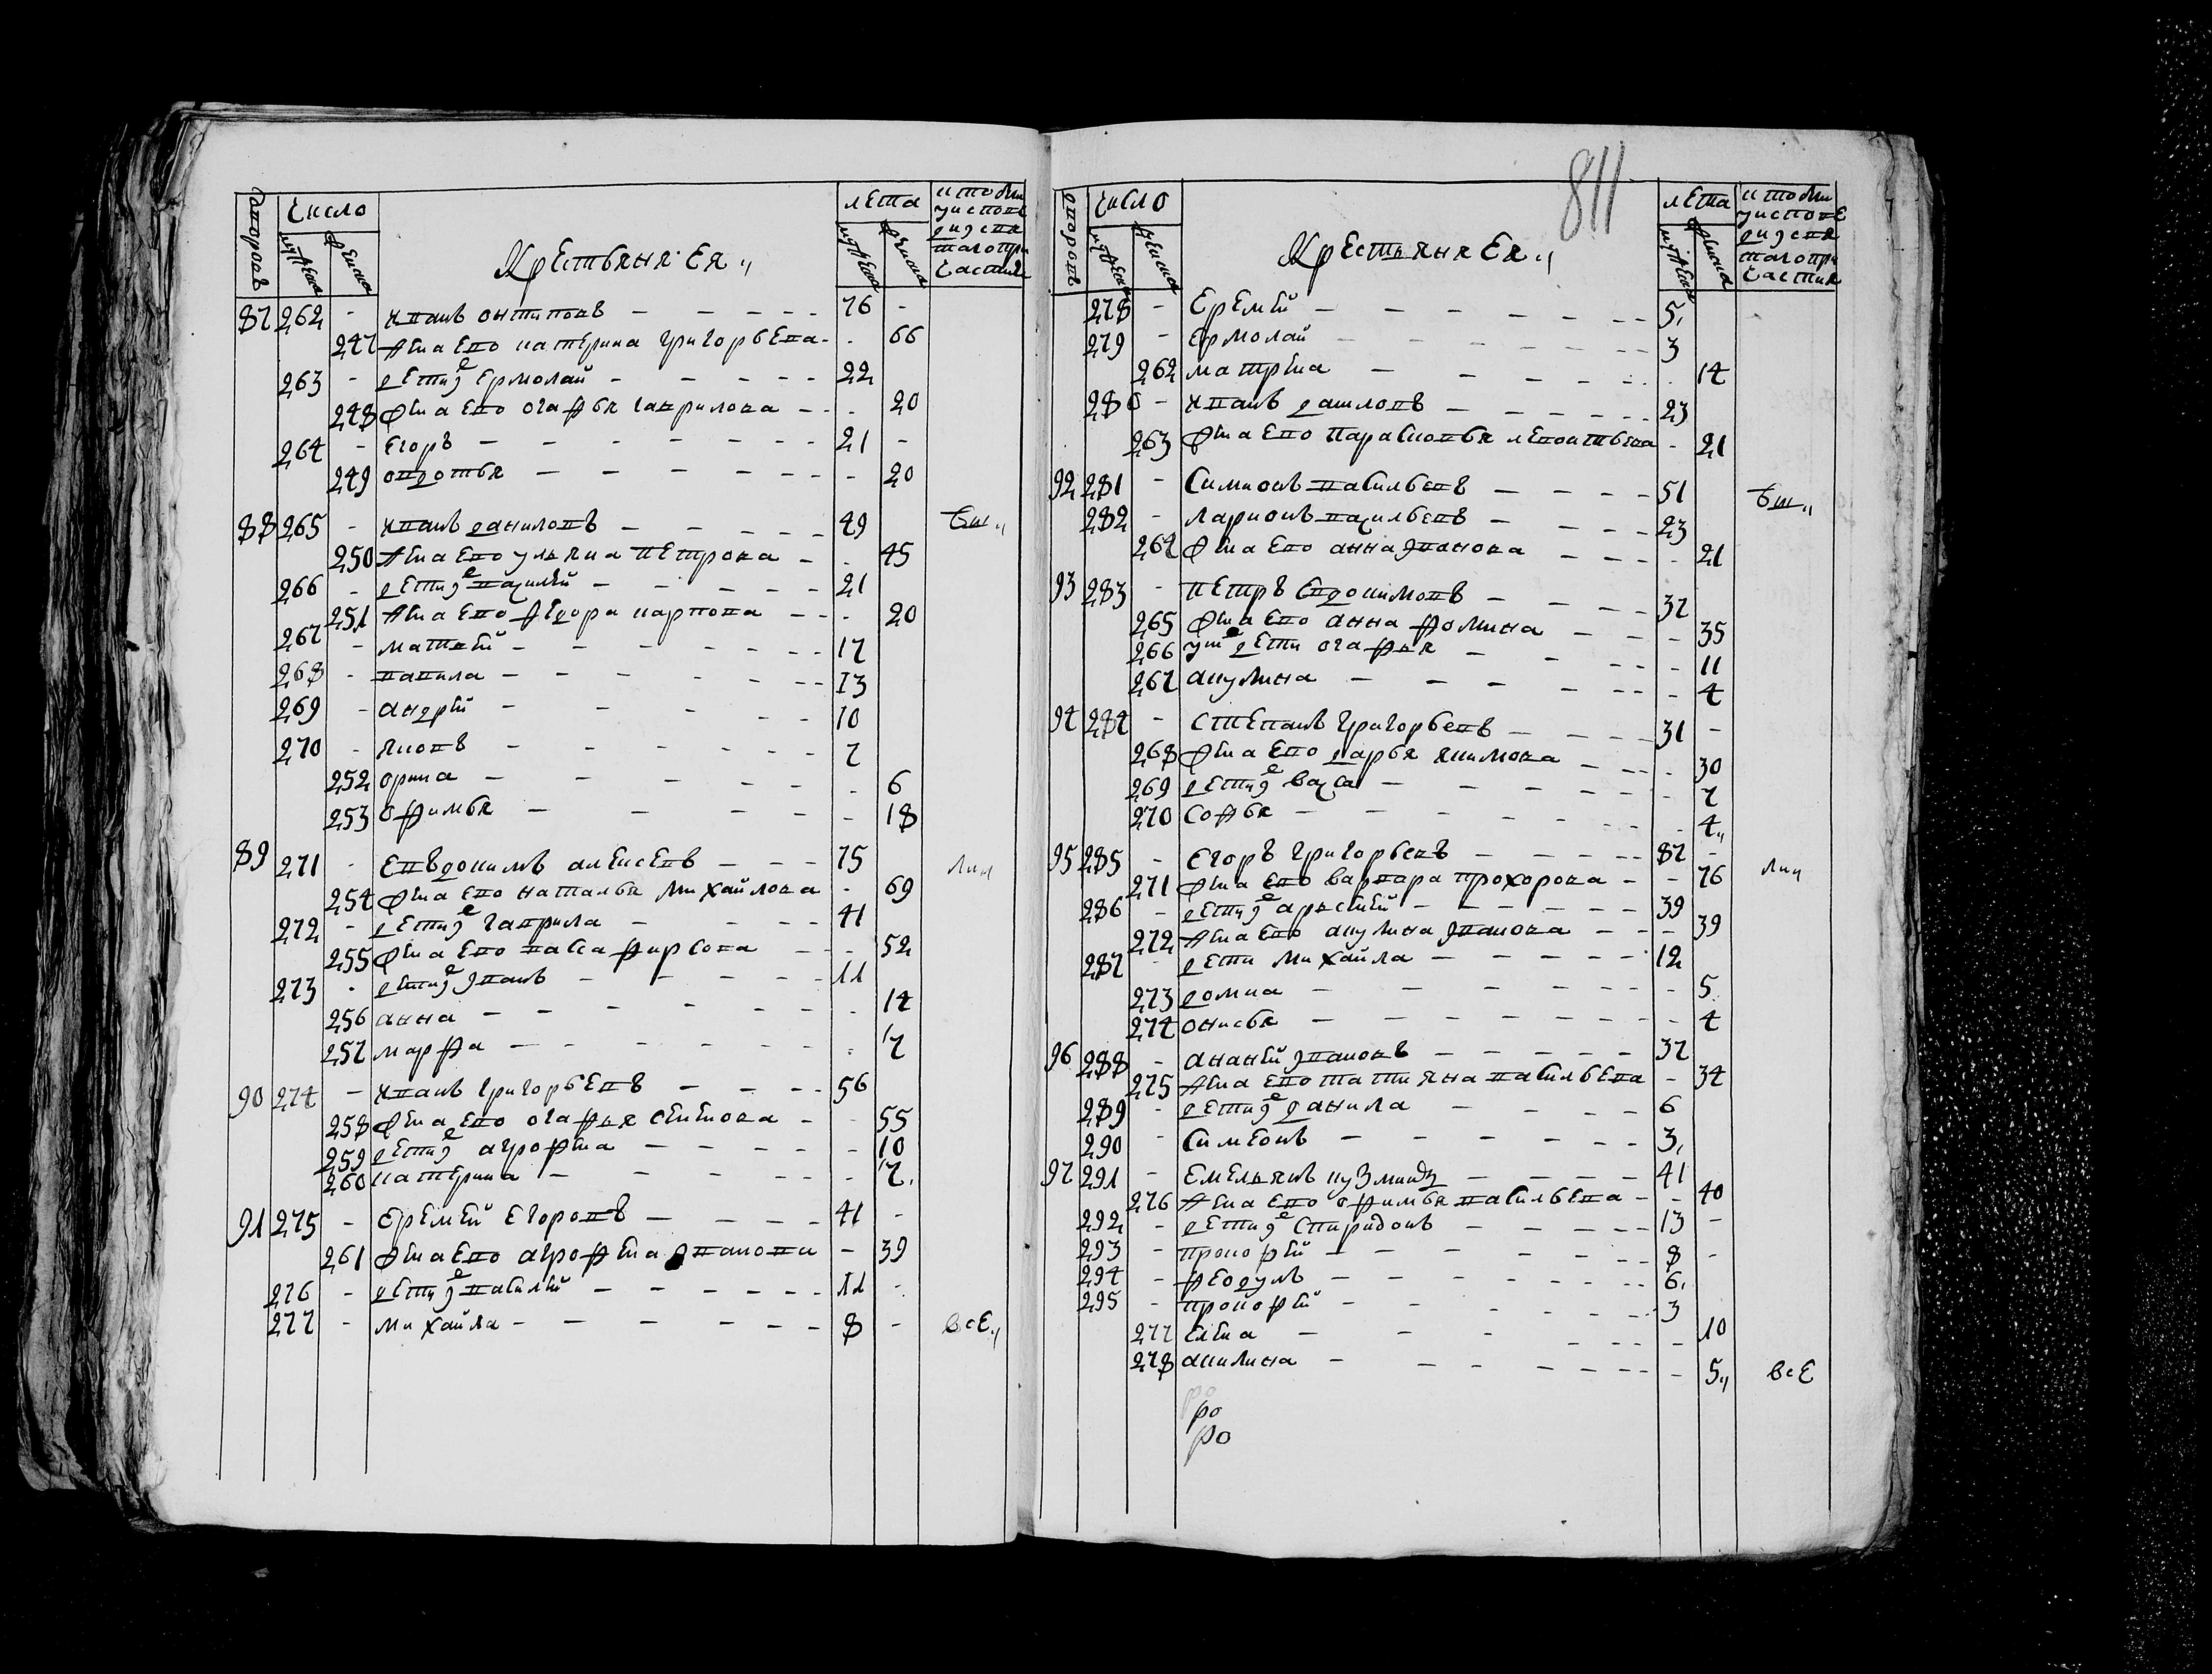 811
дворовъ число лета
мужеска женска
Крестьяня Ея
87 262 - Иванъ онтиповъ - 76 -
247 жена Ево катерина григорьева - 66
263 - дети Ермолай - 22
248 жена Ево огафья гаврилова - 20
264 - Егоръ - 21 -
249 овдотья - 20
88 265 - Иванъ даниловъ - 49
250 жена Ево ульяна петрова - 45
266 - дети василей - 21
251 жена Ево федора карпова - 20
267 - матвей - 17
268 - вавила - 13
269 - андрей - 10
270 - яковъ - 7
252 орина - 6
253 офимья - 18
89 271 - Евъдокимъ алексеевъ - 75
254 жена ево наталья михайлова - 69
272 - дети гаврила - 41
255 жена Ево васа фирсова - 52
273 - дети иванъ - 11
256 анна - 14
257 марфа - 7
90 274 - Иванъ григорьевъ - 56
258 жена Ево огафья - 55
259 дети агрофена - 10
260 катерина - 7
91 275 - Еремей Егоровъ - 41 -
261 жена Ево агрофена иванова - 39
276 - дети василей - 11 -
277 - михайла - 8 - все
дворовъ число лета
мужеска женска
Крестьяня Ея
278 - Еремей - 5
279 - Ермолай - 3
262 матрена - 14
280 - Иванъ - 23
263 жена Ево парасковья леонтьева - 21
92 281 - Симионъ васильевъ - 51
282 - ларионъ васильевъ - 23
264 жена Ево анна иванова - 21
93 283 - петръ Евдокимовъ - 37
265 жена Ево анна фомина - 35
266 дети огафья - 11
267 акулина - 4
94 284 - степанъ григорьевъ - 31 -
268 жена Ево дарья якимова - 30
269 дети васа - 7
270 софья - 4
95 285 - Егоръ григорьевъ - 87 -
271 жена Ево варвара прохорова - 76
286 - дети - 39
272 жена Ево акулина иванова - 39
287 - дети михайла - 12
273 домна - 5
274 онисья - 4
96 288 - ананей ивановъ - 37
275 жена Ево татияна васильева - 34
289 - дети данила - 6
290 - Симеонъ - 3
97 291 - Емельянъ кузминъ - 41
276 жена Ево офимья васильева - 40
292 - дети Спиридонъ - 13 -
293 - прокофей - 8 -
294 - феодулъ - 6
295 - прокофей - 3
277 елена - 10
278 акилина - 5 все
ро
ро